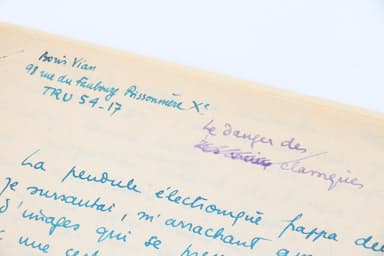 Boris Vian
98 rue du Faubourg Poissonnière Xe
TRU 54-17
Le danger des
classiques
La pendule électronique frappa deu
je sursautai, m'arrachant
d'images qui se
une